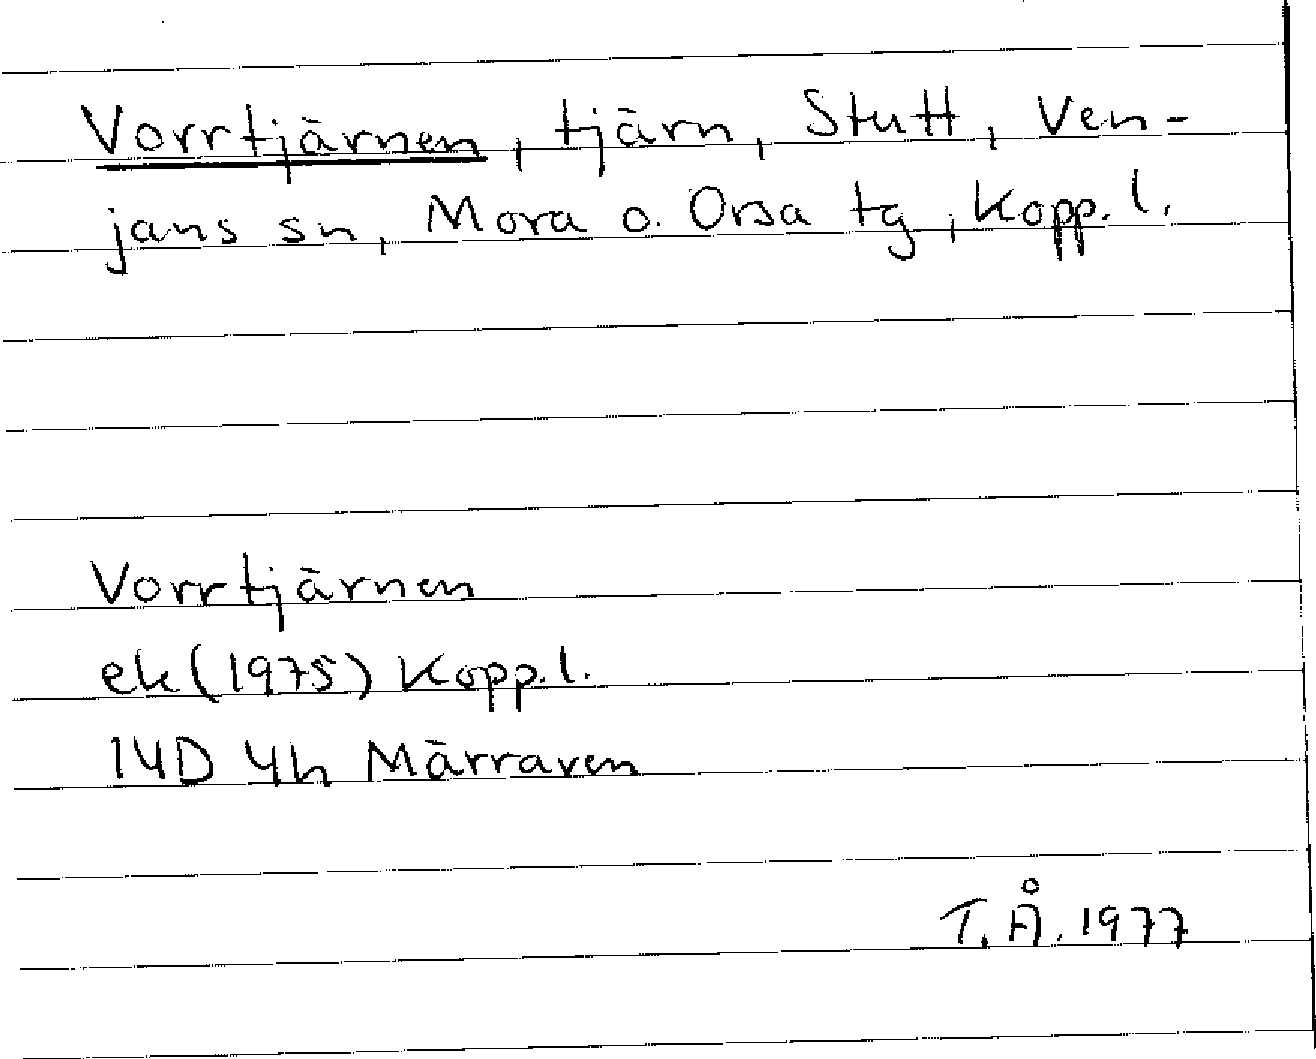 Vorrtjärnen, tjärn, Stutt, Ven-
jans sn, Mora o. Orsa tg, Kopp. l.
Vorrtjärnen
ek (1975) Kopp. l.
14D 4h Märraven
T.Å. 1977